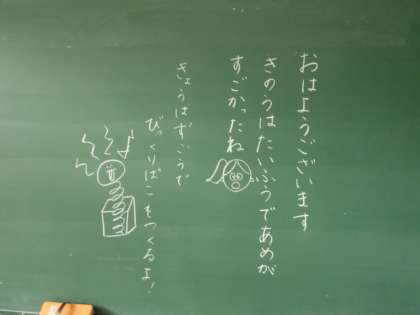 おはようございます
きのうはたいふうであめが
すごかったね
きょうはずこうで
びっくりばこをつくるよ!